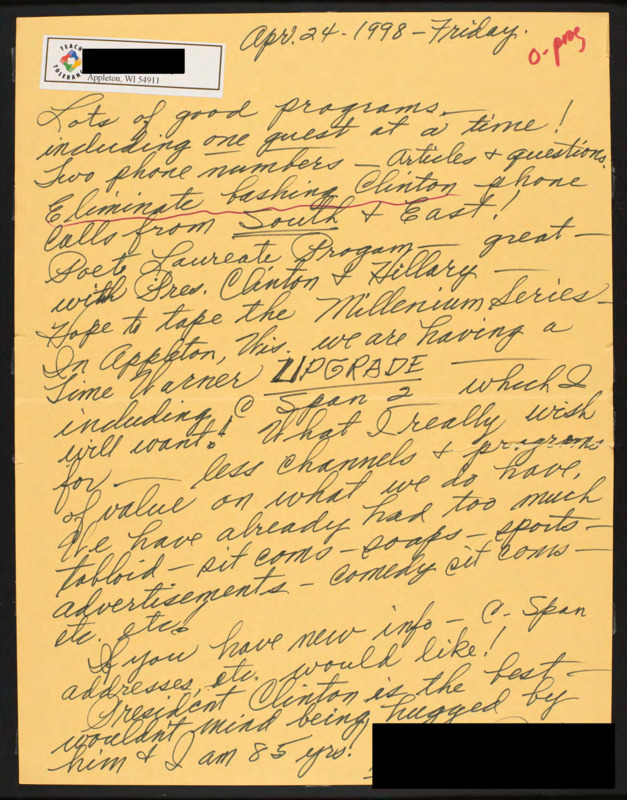 Apr. 24 - 1998 - Friday.
O-prog
TEACH
TOLERAN
Appleton, WI 54911
Lots of good programs -
including one guest at a time!
Two phone numbers - Articles & questions.
Eliminate bashing Clinton phone
calls from South & East!
Poet Laureate Progam - great -
with Pres. Clinton & Hillary -
Hope to tape the Millenium Series -
In Appleton, Wis. we are having a
Time Warner UPGRADE -
including C Span 2 which I
will want! What I really wish
for - less channels & programs
of value on what we do have.
We have already had too much
tabloid - sit coms - soaps - sports -
advertisements - comedy sit coms -
etc. etc.
If you have new info - C-Span
addresses, etc. would like!
President Clinton is the best -
wouldn't mind being hugged by
him & I am 85 yrs!